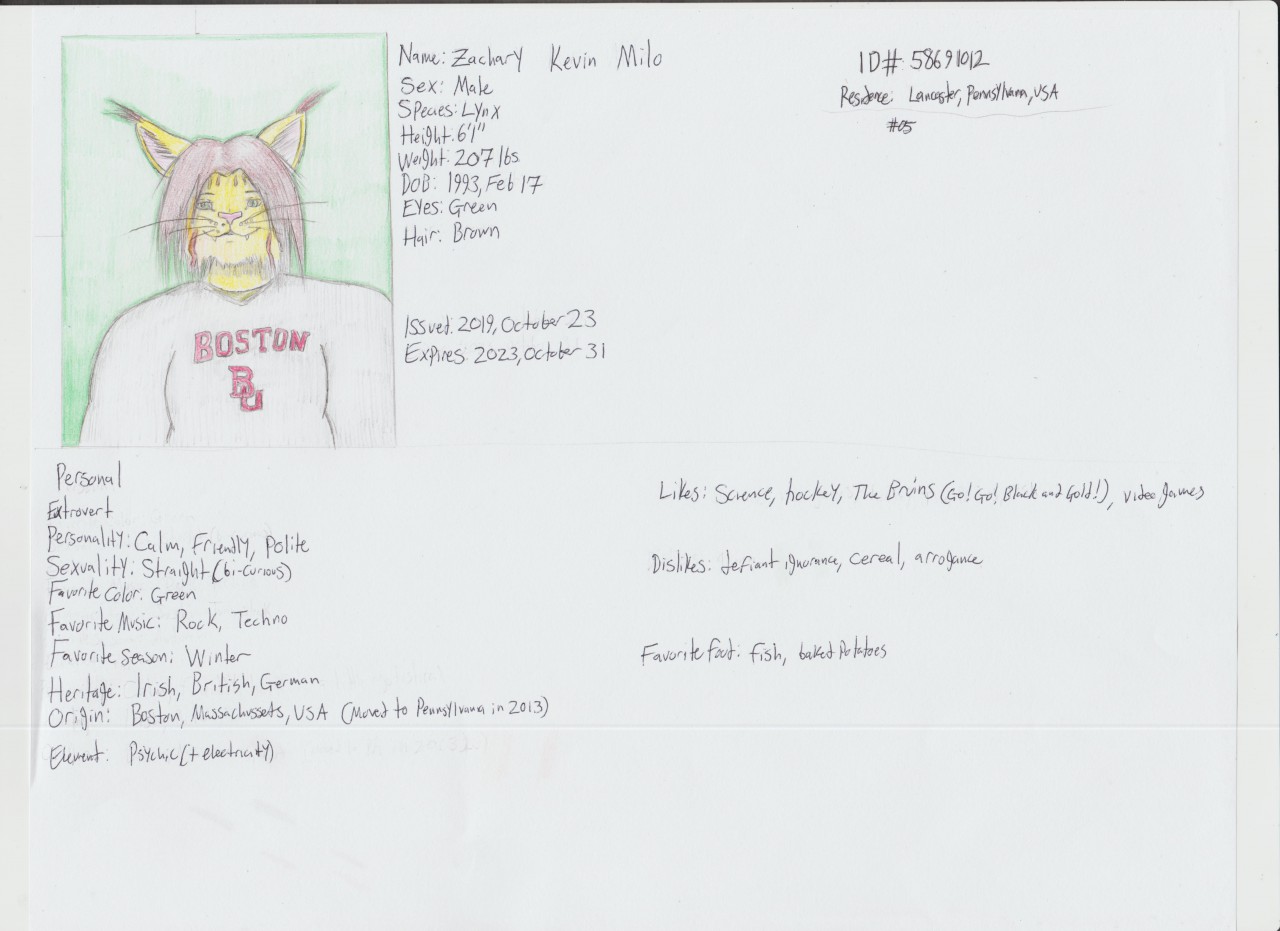 Name: Zachary Kevin Milo
Sex: Male
Species: Lynx
Height: 6'1"
Weight: 207 lbs
DOB: 1993, Feb 17
Eyes: Green
Hair: Brown
Issued: 2019, October 23
Expires: 2023, October 31
ID# 58691012
Residence: Lancaster, Pennsylvania, USA
#05
BOSTON
BU
Personal
Extrovert
Personality: Calm, Friendly, Polite
Sexuality: Straight (bi-curious)
Favorite Color: Green
Favorite Music: Rock, Techno
Favorite Season: Winter
Heritage: Irish, British, German
Origin: Boston, Massachussets, USA (Moved to Pennsylvania in 2013)
Element: Psychic (+ electricity)
Likes: Science, hockey, The Bruins (Go! Go! Black and Gold!), video games
Dislikes: defiant ignorance, cereal, arrogance
Favorite food: fish, baked potatoes